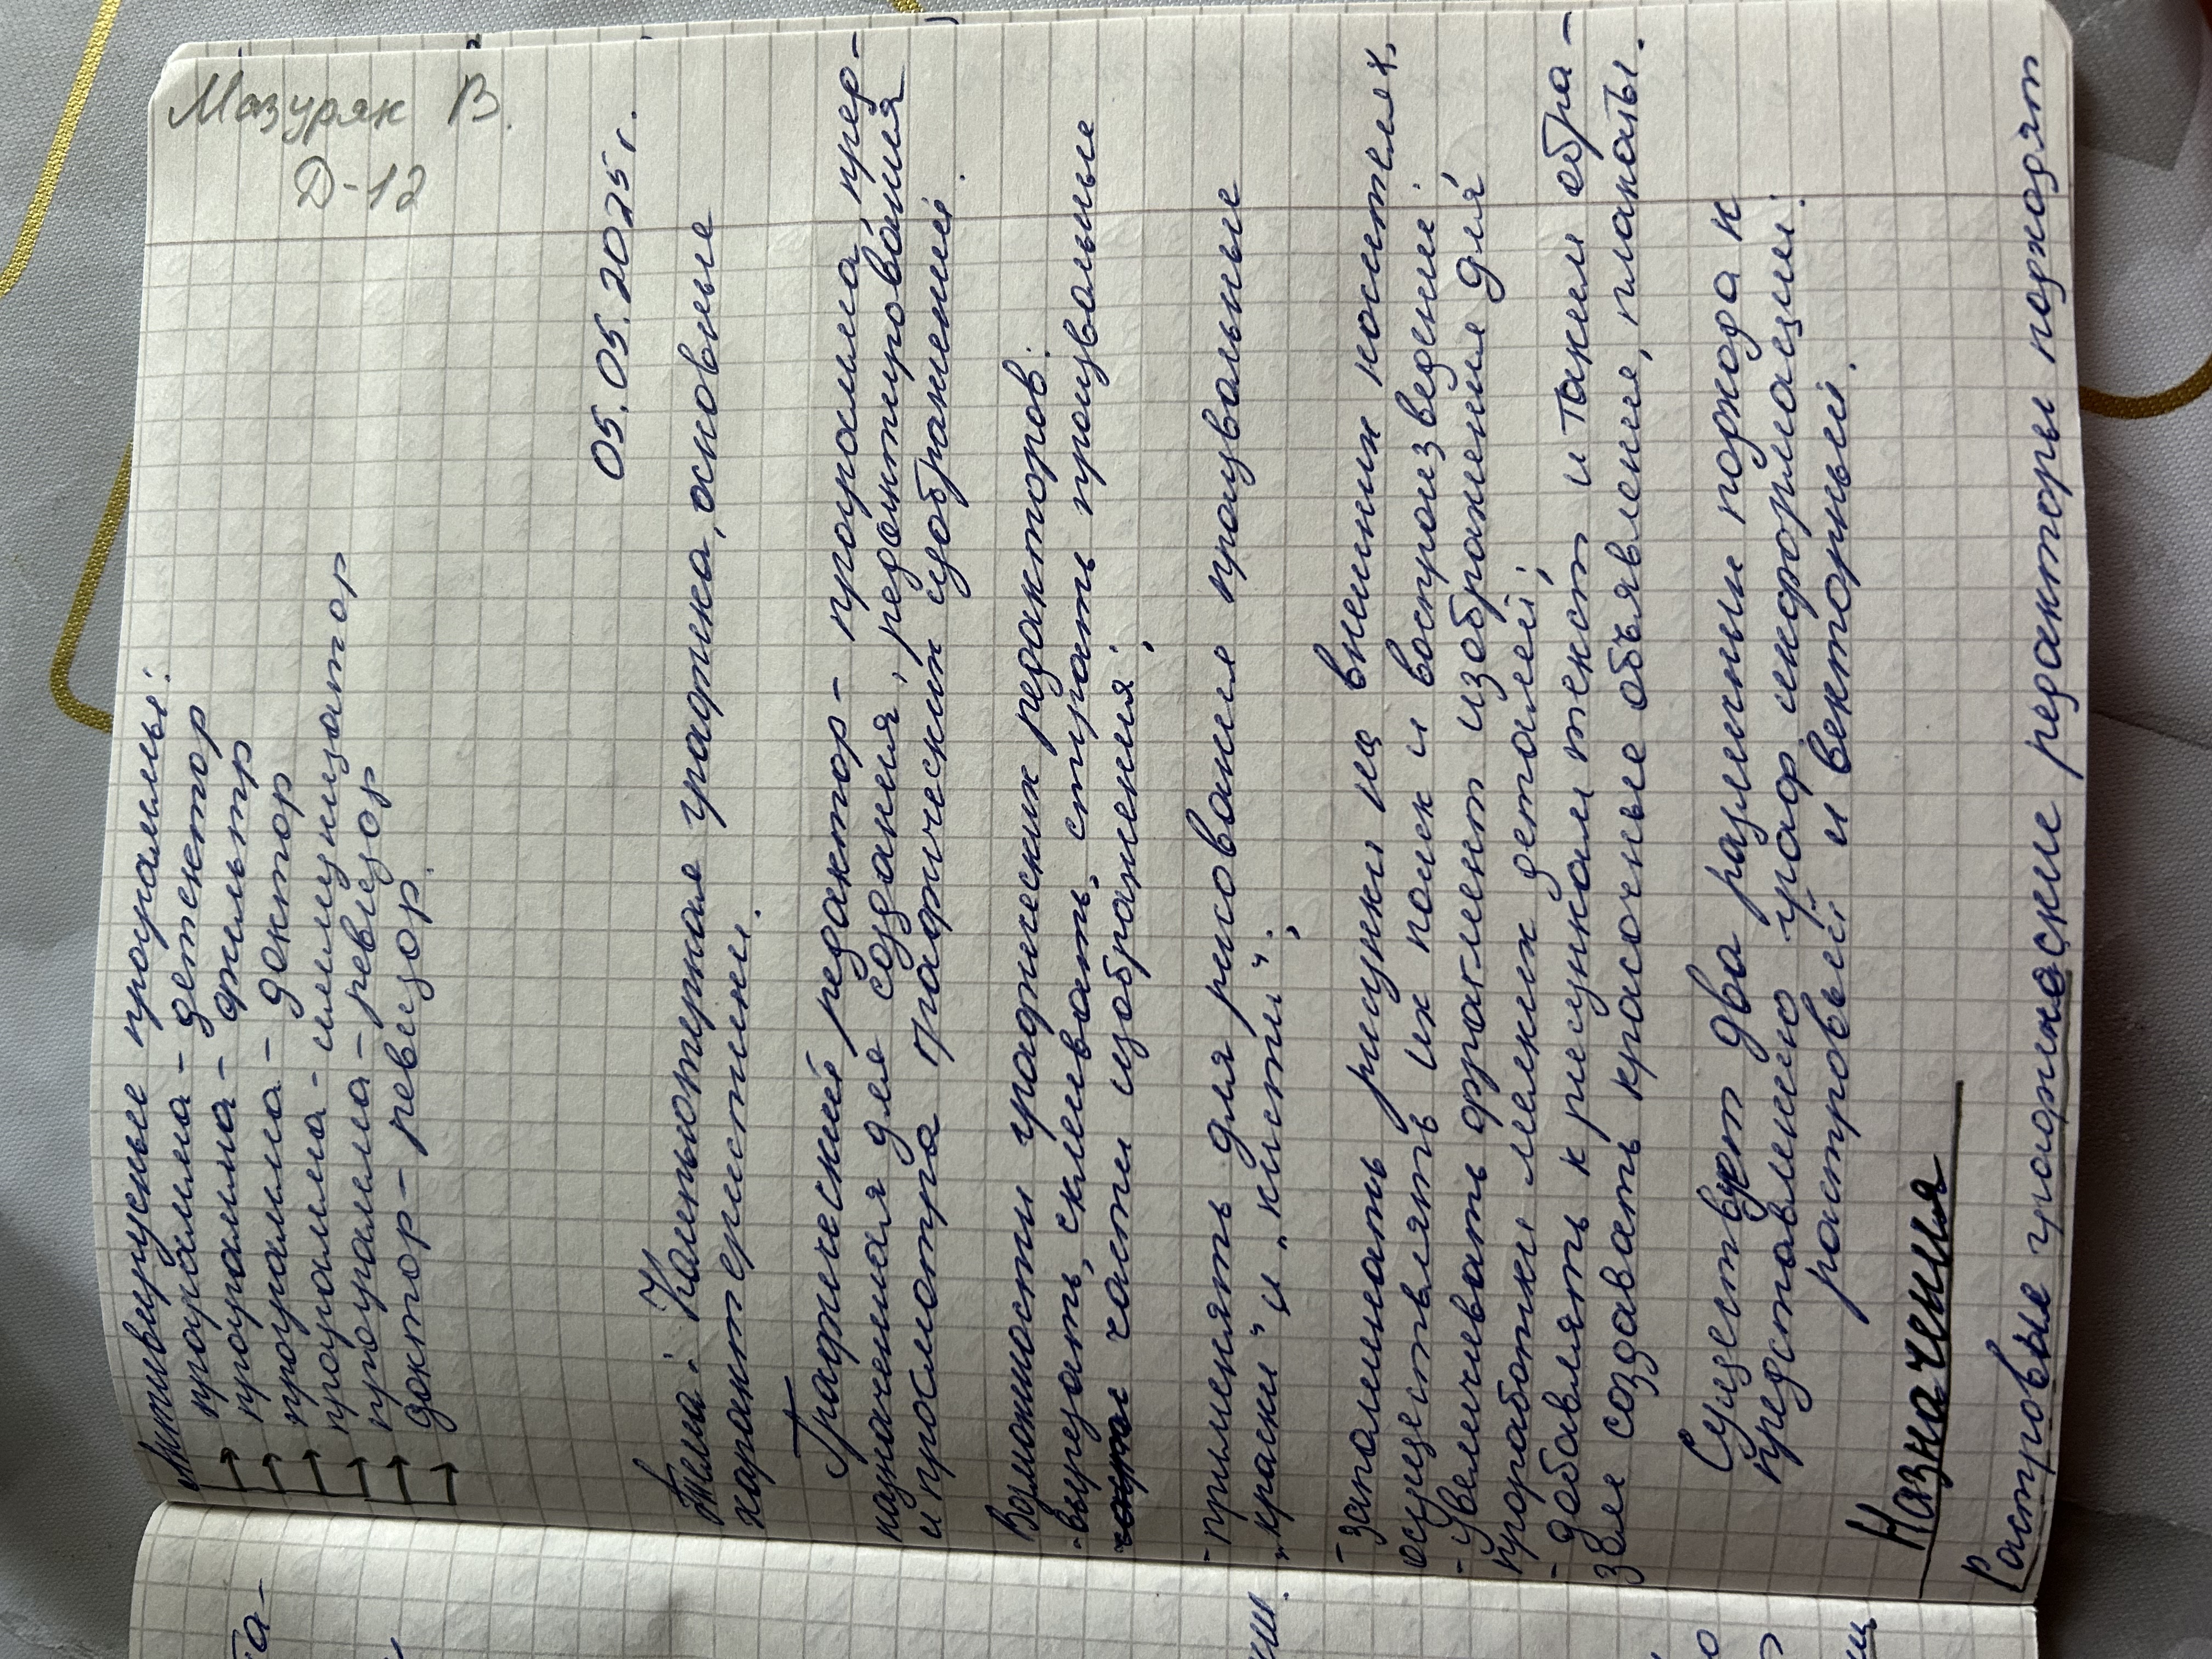 Мазуряк В.
Д-12
Антивирусные програмы:
программа - детектор
программа - фильтр
программа - доктор
программа - иммунизатор
программа - ревизор
доктор - ревизор.
05.05.2025 г.
Тема: Компьютерная графика, основные
характеристики.
Графический редактор - программа, пред-
назначенная для создания, редактирования
и просмотра графических изображений.
Возможности графических редакторов:
- вырезать, склеивать, стирать произвольные
части изображения;
- применять для рисования произвольные
„краски" и „кисти";
- запоминать рисунки на внешних носителях,
осуществлять их поиск и воспроизведение;
- увеличивать фрагмент изображения для
проработки мелких деталей;
- добавлять к рисункам текст и таким обра-
зом создавать красочные объявления, плакаты.
Существует два различных подхода к
представлению граф. информации:
растровый и векторный.
Назначения
Растровые графические редакторы подходят